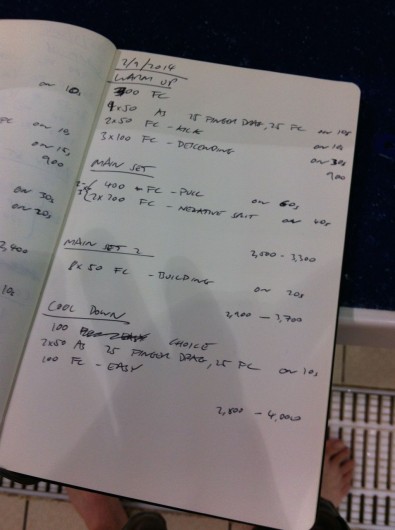 on 10s
on 10s
on 15s
900
on 30s
on 20s
2,400
10s
2/9/2014
WARM UP
300 FC
4x50 AS 25 FINGER DRAG, 25 FC on 10s
2x50 FC - KICK on 10s
3x100 FC - DESCENDING on 30s
900
MAIN SET
400 FC - PULL on 60s
2x200 FC - NEGATIVE SPLIT on 40s
2,500 - 3,300
MAIN SET 2
8x50 FC - BUILDING on 20s
2,900 - 3,700
COOL DOWN
100 CHOICE
2x50 AS 25 FINGER DRAG, 25 FC on 10s
100 FC - EASY
- 4,000